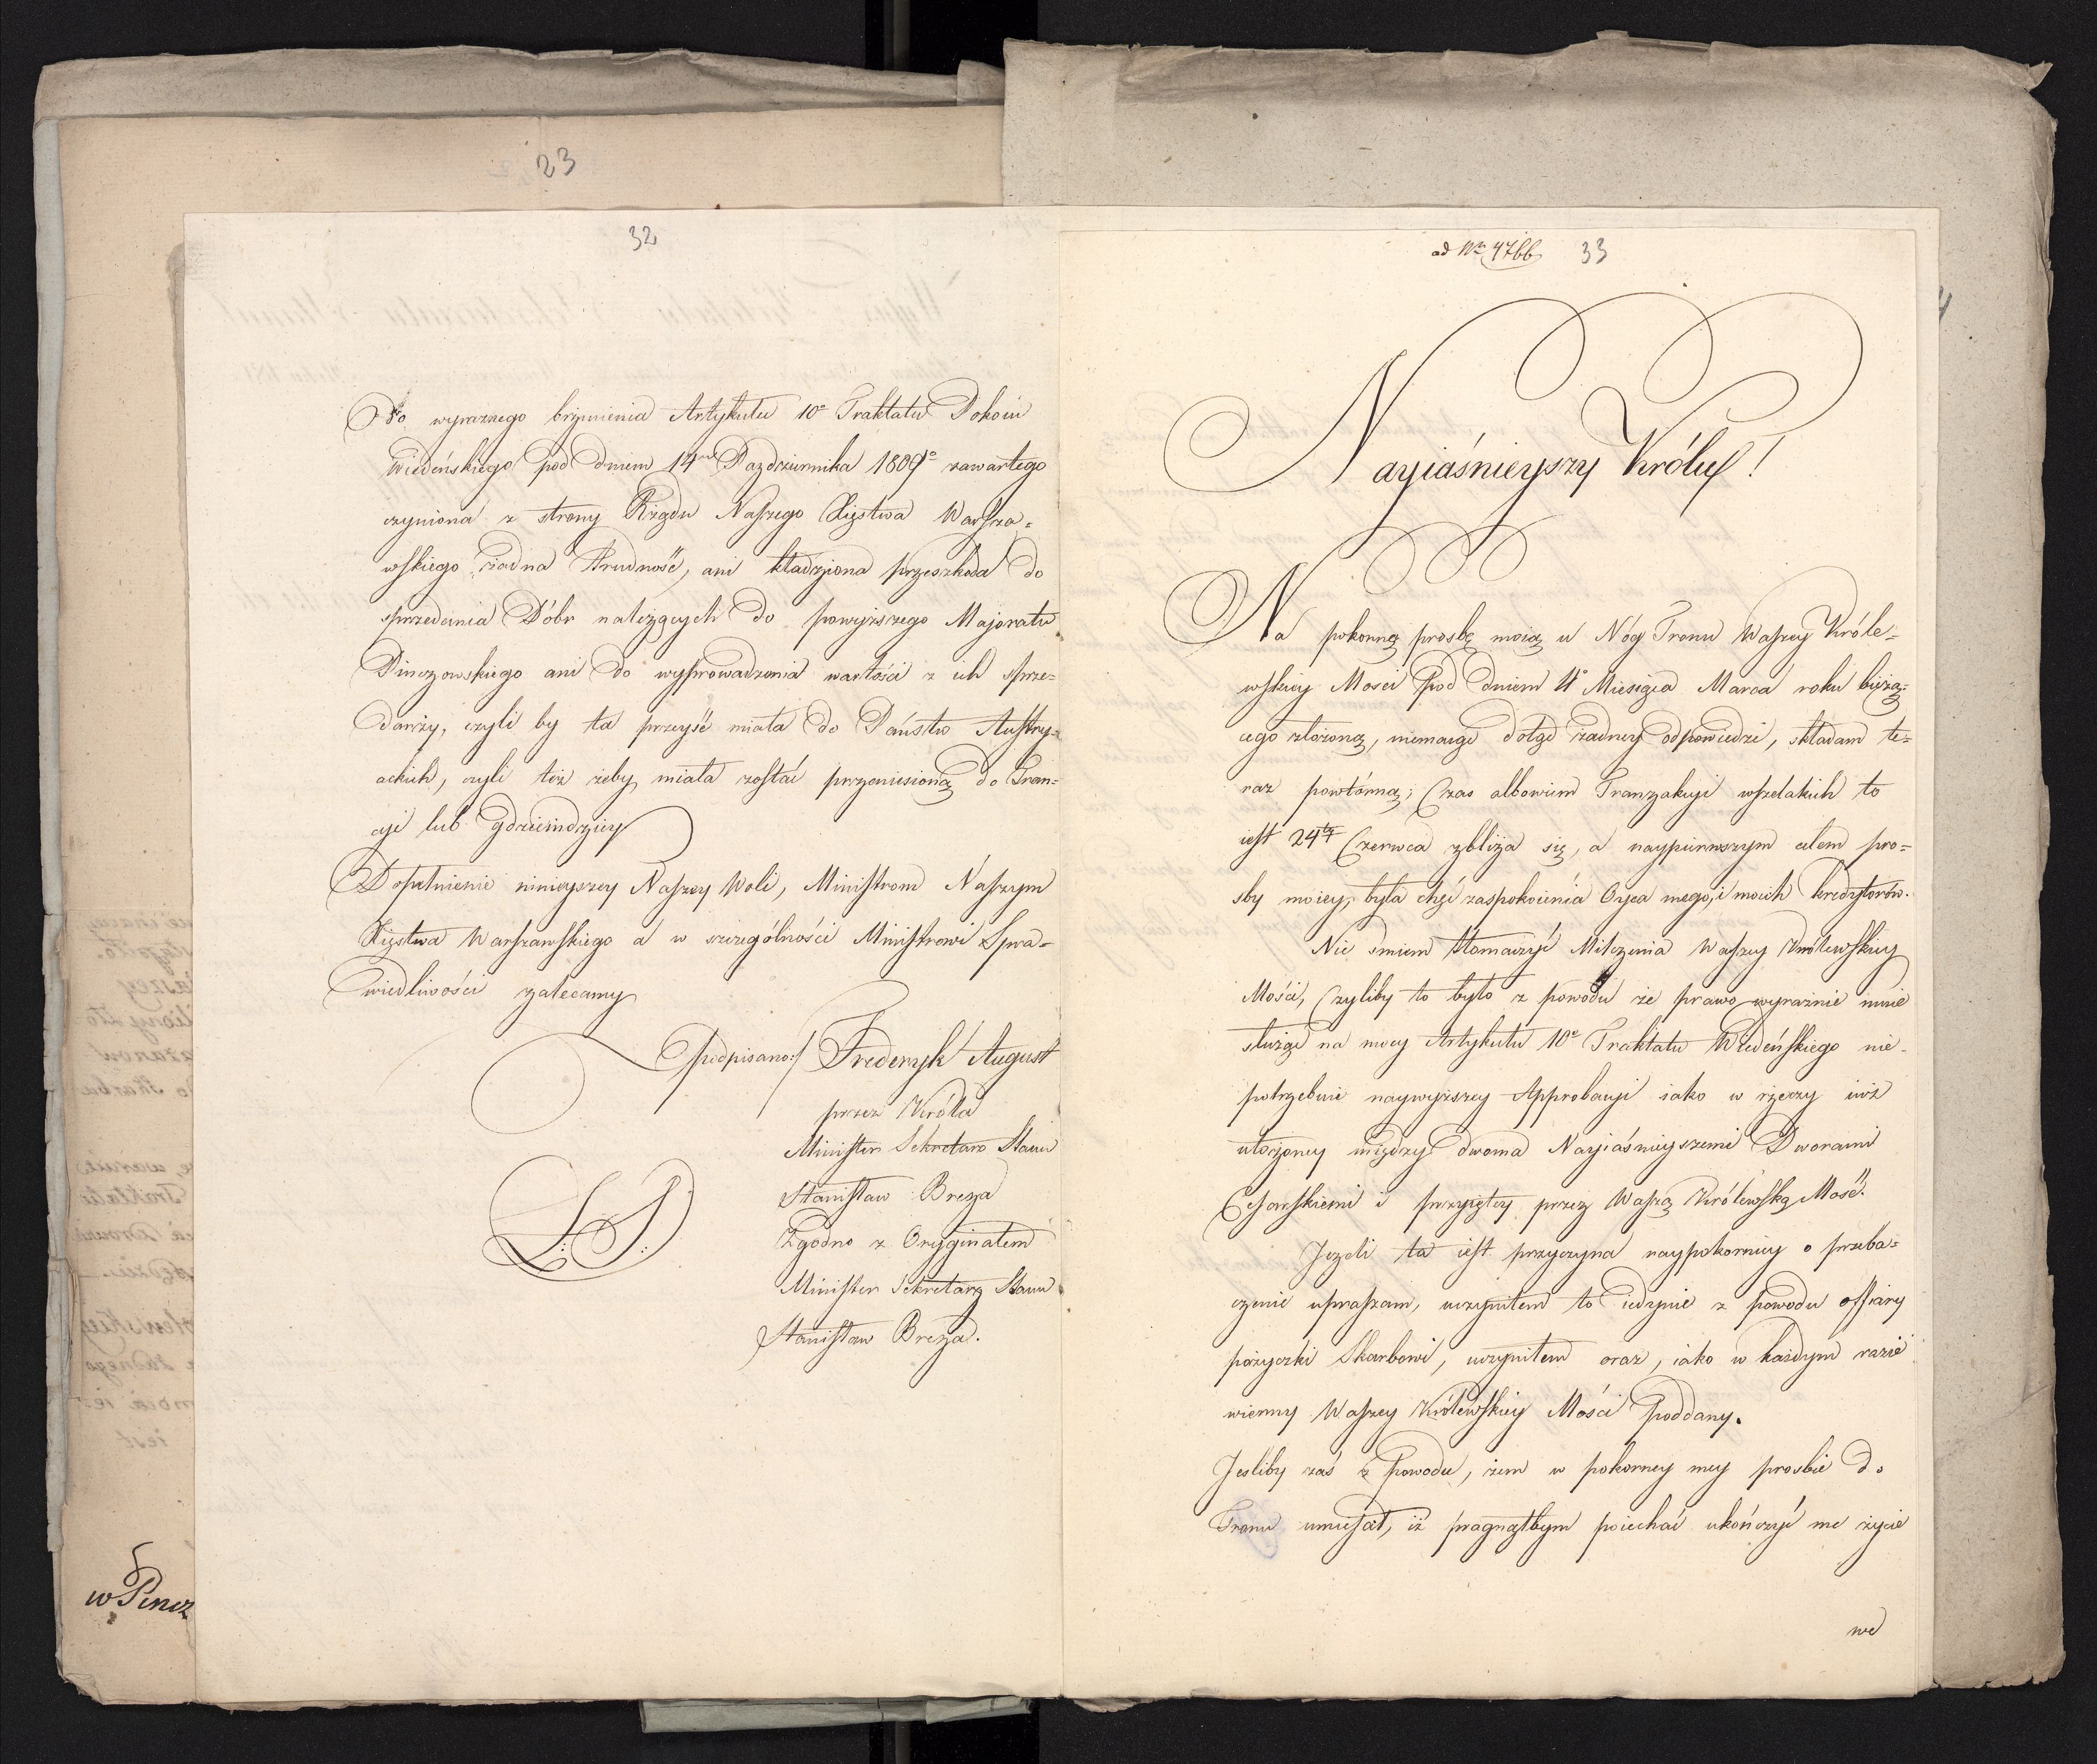 23
32
Do wyraznego brzmienia Artykułu 10º Traktatu Pokoiu
Wiedeńskiego pod dniem 14 Pazdziernika 1809º zawartego
czyniona z strony Rządu Naszego Xięstwa Warsza=
wskiego żadna trudność, ani kładziona przeszkoda do
sprzedania Dóbr należących do powyższego Majoratu
Pinczowskiego ani do wyprowadzenia wartości z ich sprze=
darzy, czyli by ta przeyść miała do Państw Austry=
ackich, czyli też żeby miała zostać przeniesioną do Fran=
cyi lub gdzieindziey
Dopełnienie ninieyszey Naszey Woli, Ministrom Naszym
Xięstwa Warszawskiego a w szczególności Ministrowi Spra=
wiedliwości zalecamy
/podpisano:/ Fryderyk August
przez Króla
Minister Sekretarz Stanu
Stanisław Breza
L: S:
Zgodno z Oryginałem
Minister Sekretarz Stanu
Stanisław Breza.
w Pincz
ad Nr 4766 33
Nayiaśnieyszy Królu!
Na pokorną prosbę moią u Nóg Tronu Waszey Króle=
wskiey Mosci pod dniem 4º Miesiąca Marca roku bieżą=
cego złożoną, niemaiąc dotąd żadney odpowiedzi, składam te=
raz powtórną; Czas albowiem Tranzakcyi wszelakich to
iest 24 Czerwca zbliża się, a naypierwszym celem pro=
sby moiey, była chęć zaspokoienia Oyca mego, i moich kredytorów.
Nie smiem tłomaczyć Milczenia Waszey Królewskiey
Mości, Czyliby to było z powodu że prawo wyraźnie mnie
służąc na mocy Artykułu 10º Traktatu Wiedeńskiego nie=
potrzebuie naywyższey Approbacyi iako w rzeczy iuż
ułożoney między dwoma Nayiaśnieyszemi Dworami
Cesarskiemi i przyiętey przez Waszą Królewską Mość.
Jezeli ta iest przyczyna naypokorniey o przeba=
czenie upraszam, uczyniłem to iedynie z powodu offiary
pożyczki Skarbowi, uczyniłem oraz, iako w każdym razie
wierny Waszey Królewskiey Mości poddany.
Jesliby zaś z Powodu, żem w pokorney mey prosbie do
Tronu umieścił, iż pragnąłbym poiechać ukończyć me życie
we